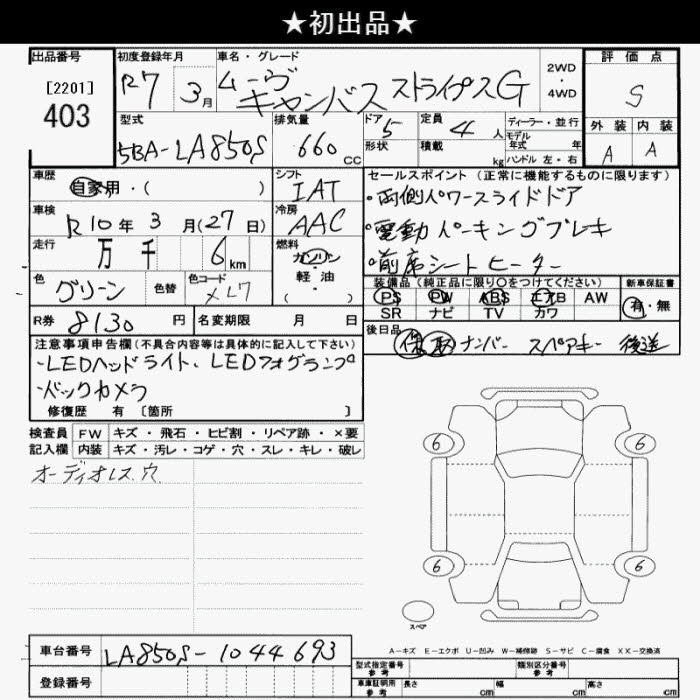 ★初出品★
出品番号
[2201]
403
初度登録年月
R7 3月
車名・グレード
ムーヴ
キャンバス ストライプスG
2WD
・
4WD
評価点
S
外装 内装
A A
型式
5BA-LA850S
排気量
660 CC
ドア 5
形状
定員 4 人
積載 kg
ディーラー・並行
モデル
年式 年
ハンドル 左・右
車歴
自家用・( )
シフト
IAT
車検
R10年 3月(27日)
冷房
AAC
走行
万 千 6 km
燃料
ガソリン
・
軽・油
( )
色
グリーン
色替
色コード
R券 8130円
名変期限 月 日
セールスポイント(正常に機能するものに限ります)
・両側パワースライドドア
・電動パーキングブレーキ
・前席シートヒーター
装備品(純正品に限り○をつけてください)
PS PW ABS エアB AW
SR ナビ TV カワ
新車保証書
有・無
後日品
保 取 ナンバー スペアキー 後送
注意事項申告欄(不具合内容等は具体的に記入して下さい)
・LEDヘッドライト、LEDフォグランプ
・バックカメラ
修復歴 有 [箇所 ]
検査員 FW キズ・飛石・ヒビ割・リペア跡・×要
記入欄 内装 キズ・汚レ・コゲ・穴・スレ・キレ・破レ
オーディオレス穴
6 6
6 6
スペア
A-キズ E-エクボ U-凹み W-補修跡 S-サビ C-腐食 XX-交換済
車台番号 LA850S-1044693
登録番号
型式指定番号
参考
類別区分番号
参考
車庫証明用
参考
長さ cm 幅 cm 高さ cm